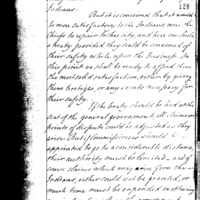 Indians.
128
But it is conceived that it would
be more satisfactory to the Indians were the
Chiefs to repair to this city, and here conclude
a treaty provided they could be convinced of
their safety while upon the business. On
this point we shall be ready to afford them
the most solid satisfaction, either by giving
them hostages, or any escorts necessary for
their safety.
If the treaty should be held at the
seat of the general government, all
points of dispute could be adjusted as they
arose. But if Commissioners should be
appointed to go to a considerable distance,
their authority must be limited, and of
some claims which may arise from the
Indians either could not be granted, or
much time must be expended in